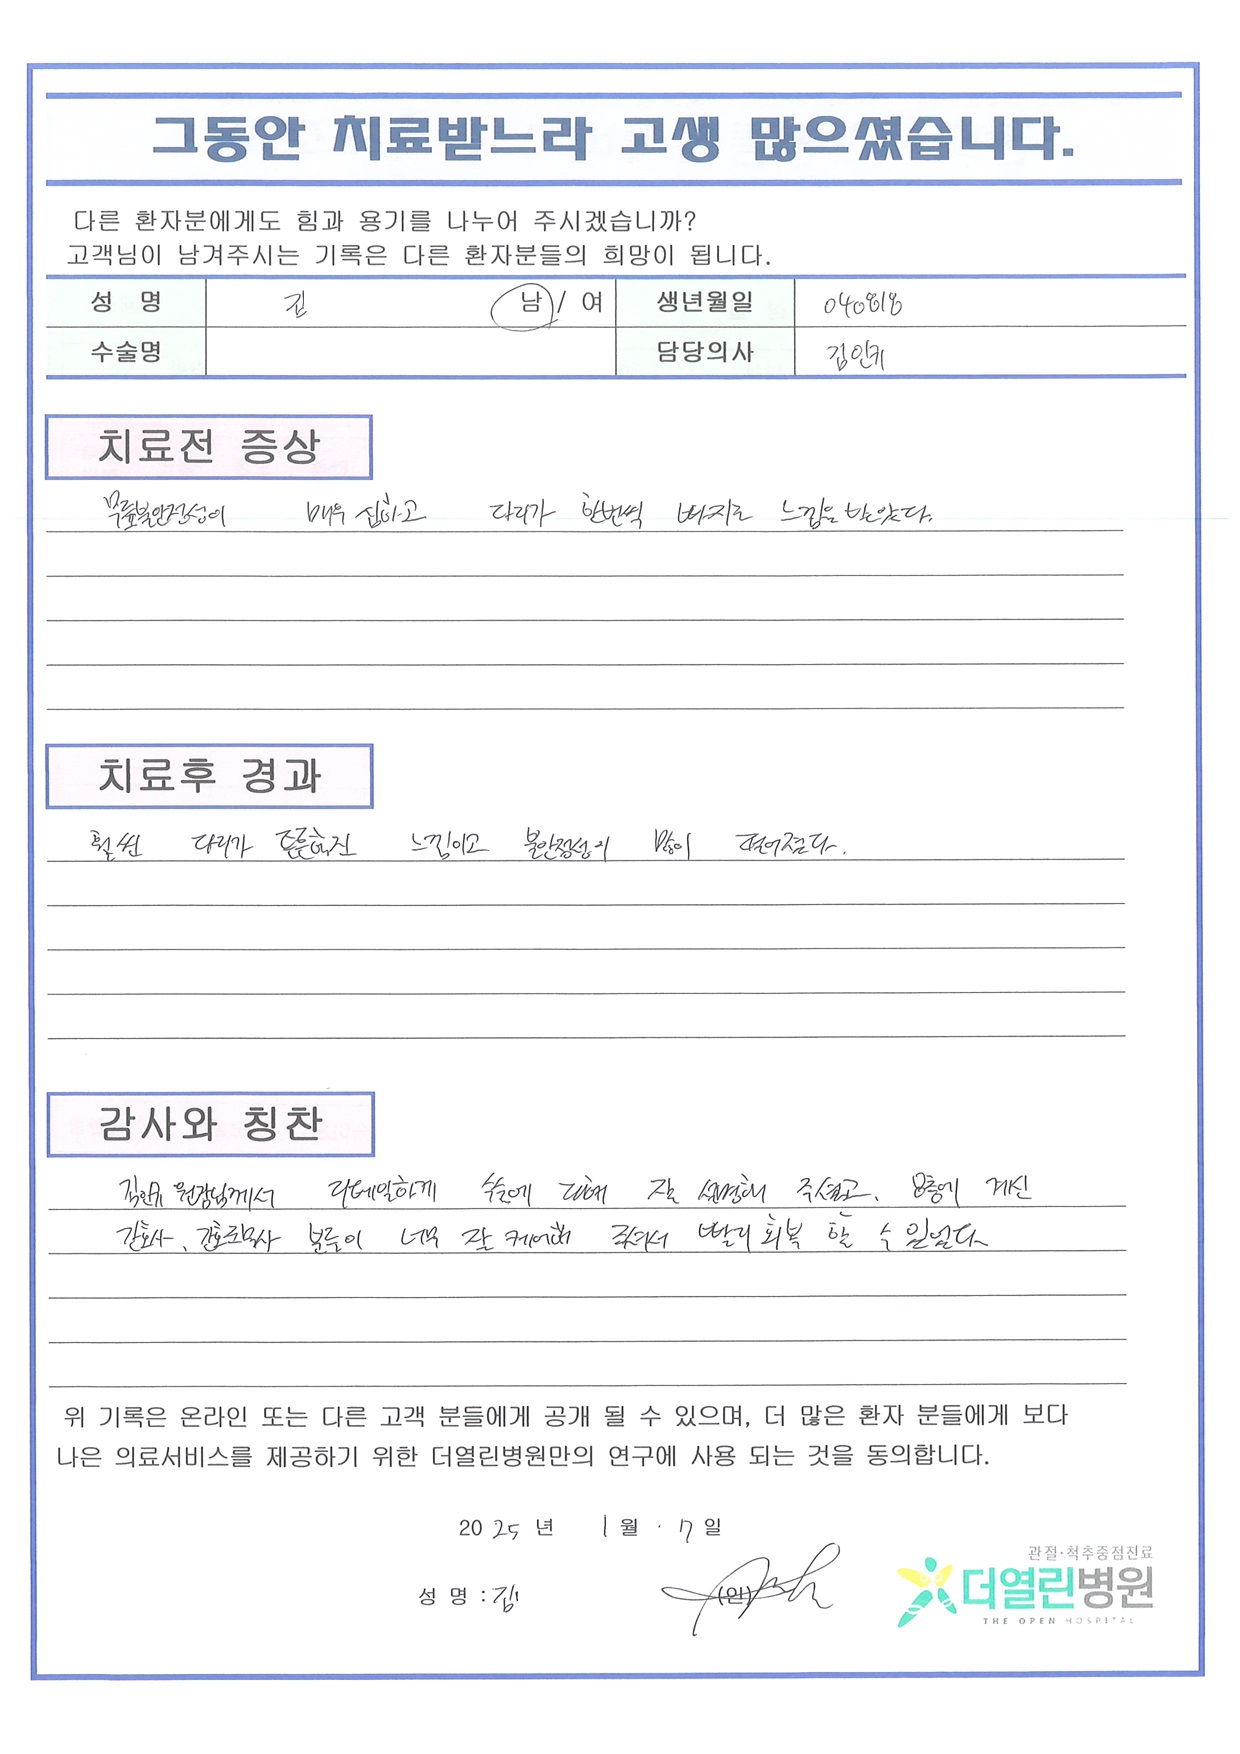 그동안 치료받느라 고생 많으셨습니다.
다른 환자분에게도 힘과 용기를 나누어 주시겠습니까?
고객님이 남겨주시는 기록은 다른 환자분들의 희망이 됩니다.
성 명 김 남 / 여 생년월일 040818
수술명 담당의사
치료전 증상
무릎불안전성이 매우 심하고 다리가 한번씩 빠지는 느낌을 받았다.
치료후 경과
훨씬 다리가 튼튼해진 느낌이고 불안정성이 많이 떨어졌다.
감사와 칭찬
원장님께서 디테일하게 수술에 대해 잘 설명해 주셨고, 병동에 계신
간호사, 간호조무사 분들이 너무 잘 케어해 주셔서 빨리 회복 할 수 있었다.
위 기록은 온라인 또는 다른 고객 분들에게 공개 될 수 있으며, 더 많은 환자 분들에게 보다
나은 의료서비스를 제공하기 위한 더열린병원만의 연구에 사용 되는 것을 동의합니다.
2025 년 1 월 · 7 일
관절·척추중점진료
성 명 : 김 (인)
더열린병원
THE OPEN HOSPITAL